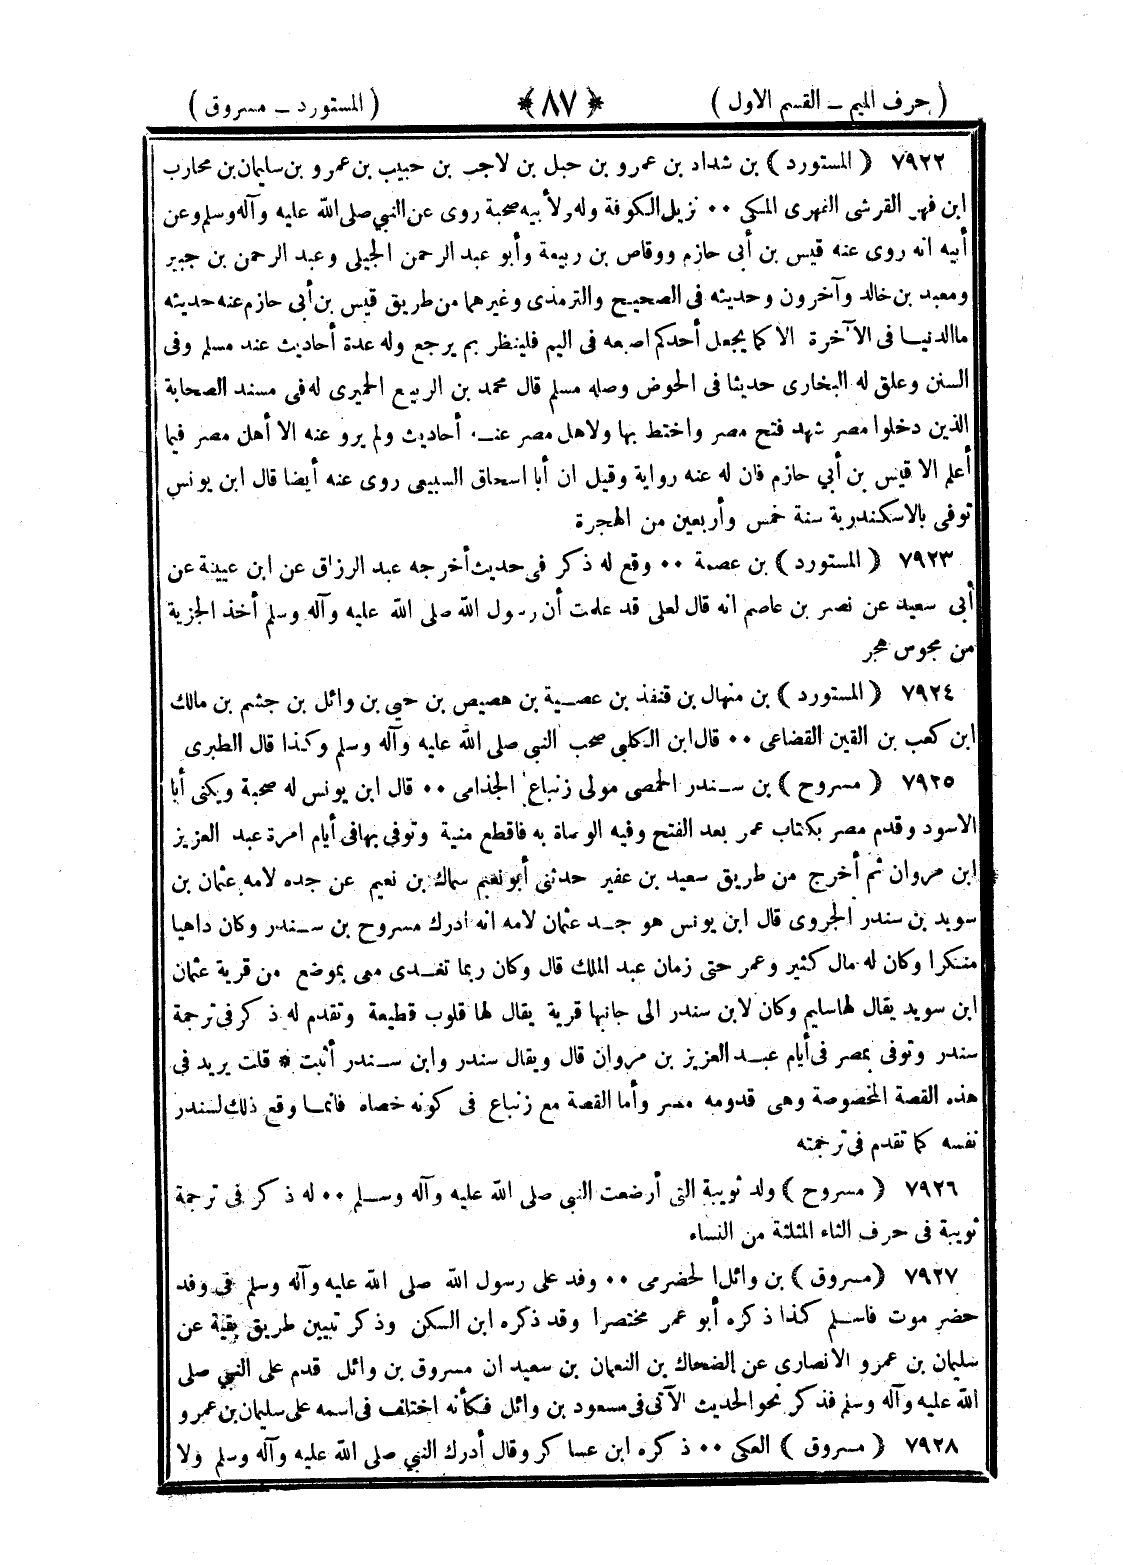 ( حرف الميم – القسم الاول ) ﴿ ٨٧ ﴾ ( المستورد – مسروق )
٧٩٢٢ ( المستورد ) بن شداد بن عمرو بن حبل بن لاجب بن حبيب بن عمرو بن سليمان بن محارب
ابن فهر القرشى الفهرى المكى ٠٠ نزيل الكوفة وله ولأبيه صحبة روى عن النبي صلى الله عليه وآله وسلم وعن
أبيه انه روى عنه قيس بن أبى حازم ووقاص بن ربيعة وأبو عبد الرحمن الجيلى وعبد الرحمن بن جبير
ومعبد بن خالد وآخرون وحديثه فى الصحيح والترمذى وغيرهما من طريق قيس بن أبى حازم عنه حديثه
ماالدنيا فى الآخرة الا كما يجعل أحدكم اصبعه فى اليم فلينظر بم يرجع وله عدة أحاديث عند مسلم وفى
السنن وعلق له البخارى حديثا فى الحوض وصله مسلم قال محمد بن الربيع الحميرى له فى مسند الصحابة
الذين دخلوا مصر شهد فتح مصر واختط بها ولاهل مصر عنه أحاديث ولم يرو عنه الا أهل مصر فيما
أعلم الا قيس بن أبي حازم فان له عنه رواية وقيل ان أبا اسحاق السبيعى روى عنه أيضا قال ابن يونس
توفى بالاسكندرية سنة خمس وأربعين من الهجرة
٧٩٢٣ ( المستورد ) بن عصمة ٠٠ وقع له ذكر فى حديث أخرجه عبد الرزاق عن ابن عيينة عن
أبى سعيد عن نصر بن عاصم انه قال لعلى قد علمت أن رسول الله صلى الله عليه وآله وسلم أخذ الجزية
من مجوس هجر
٧٩٢٤ ( المستورد ) بن منهال بن قنفذ بن عصية بن هصيص بن حيي بن وائل بن جشم بن مالك
ابن كعب بن القين القضاعى ٠٠ قال ابن الكلبي صحب النبي صلى الله عليه وآله وسلم وكذا قال الطبرى
٧٩٢٥ ( مسروح ) بن سندر الحمصى مولى زنباع الجذامى ٠٠ قال ابن يونس له صحبة ويكنى أبا
الاسود وقدم مصر بكتاب عمر بعد الفتح وفيه الوصاة به فاقطع منية وتوفى بهافى أيام امرة عبد العزيز
ابن مروان ثم أخرج من طريق سعيد بن عفير حدثنى أبو نعيم سماك بن نعيم عن جده لامه عثمان بن
سويد بن سندر الجروى قال ابن يونس هو جد عثمان لامه انه ادرك مسروح بن سندر وكان داهيا
منكرا وكان له مال كثير وعمر حتى زمان عبد الملك قال وكان ربما تغدى معى بموضع من قرية عثمان
ابن سويد يقال لهاسليم وكان لابن سندر الى جانبها قرية يقال لها قلوب قطيعة وتقدم له ذكر فى ترجمة
سندر وتوفى بمصر فى أيام عبد العزيز بن مروان قال ويقال سندر وابن سندر أثبت * قلت يريد فى
هذه القصة المخصوصة وهى قدومه مصر وأما القصة مع زنباع فى كونه خصاه فانما وقع ذلك لسندر
نفسه كما تقدم فى ترجمته
٧٩٢٦ ( مسروح ) ولد ثويبة التى أرضعت النبى صلى الله عليه وآله وسلم ٠٠ له ذكر فى ترجمة
ثويبة فى حرف الثاء المثلثة من النساء
٧٩٢٧ (مسروق ) بن وائل الحضرمى ٠٠ وفد على رسول الله صلى الله عليه وآله وسلم فى وفد
حضر موت فاسلم كذا ذكره أبو عمر مختصرا وقد ذكره ابن السكن وذكر تبيين طريق بقية عن
سليمان بن عمرو الانصارى عن الضحاك بن النعمان بن سعيد ان مسروق بن وائل قدم على النبي صلى
الله عليه وآله وسلم فذكر نحوالحديث الآتى فى مسعود بن وائل فكأنه اختلف فى اسمه على سليمان بن عمرو
٧٩٢٨ ( مسروق ) العكى ٠٠ ذكره ابن عساكر وقال أدرك النبي صلى الله عليه وآله وسلم ولا